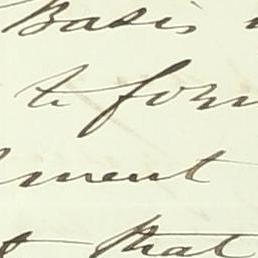 Basis
to form
ment
that